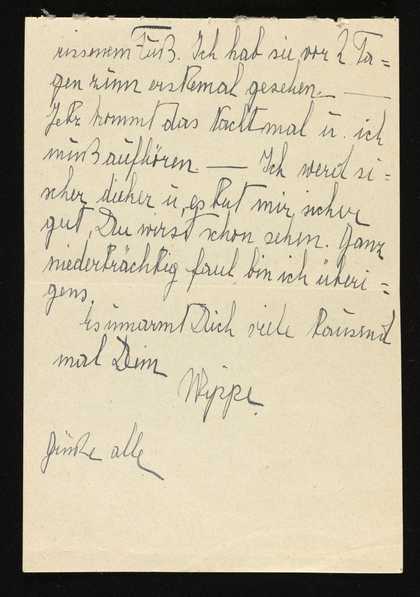 rissenem Fuß. Ich hab sie vor 2 Ta=
gen zum erstemal gesehen. —
Jetz kommt das Nachtmal u. ich
muß aufhören. — Ich werd si=
cher dicher u. es tut mir sicher
gut, Du wirst schon sehen. Ganz
niederträchtig faul bin ich übri=
gens.
Es umarmt Dich viele tausend
mal Dein
Wippe.
grüße alle